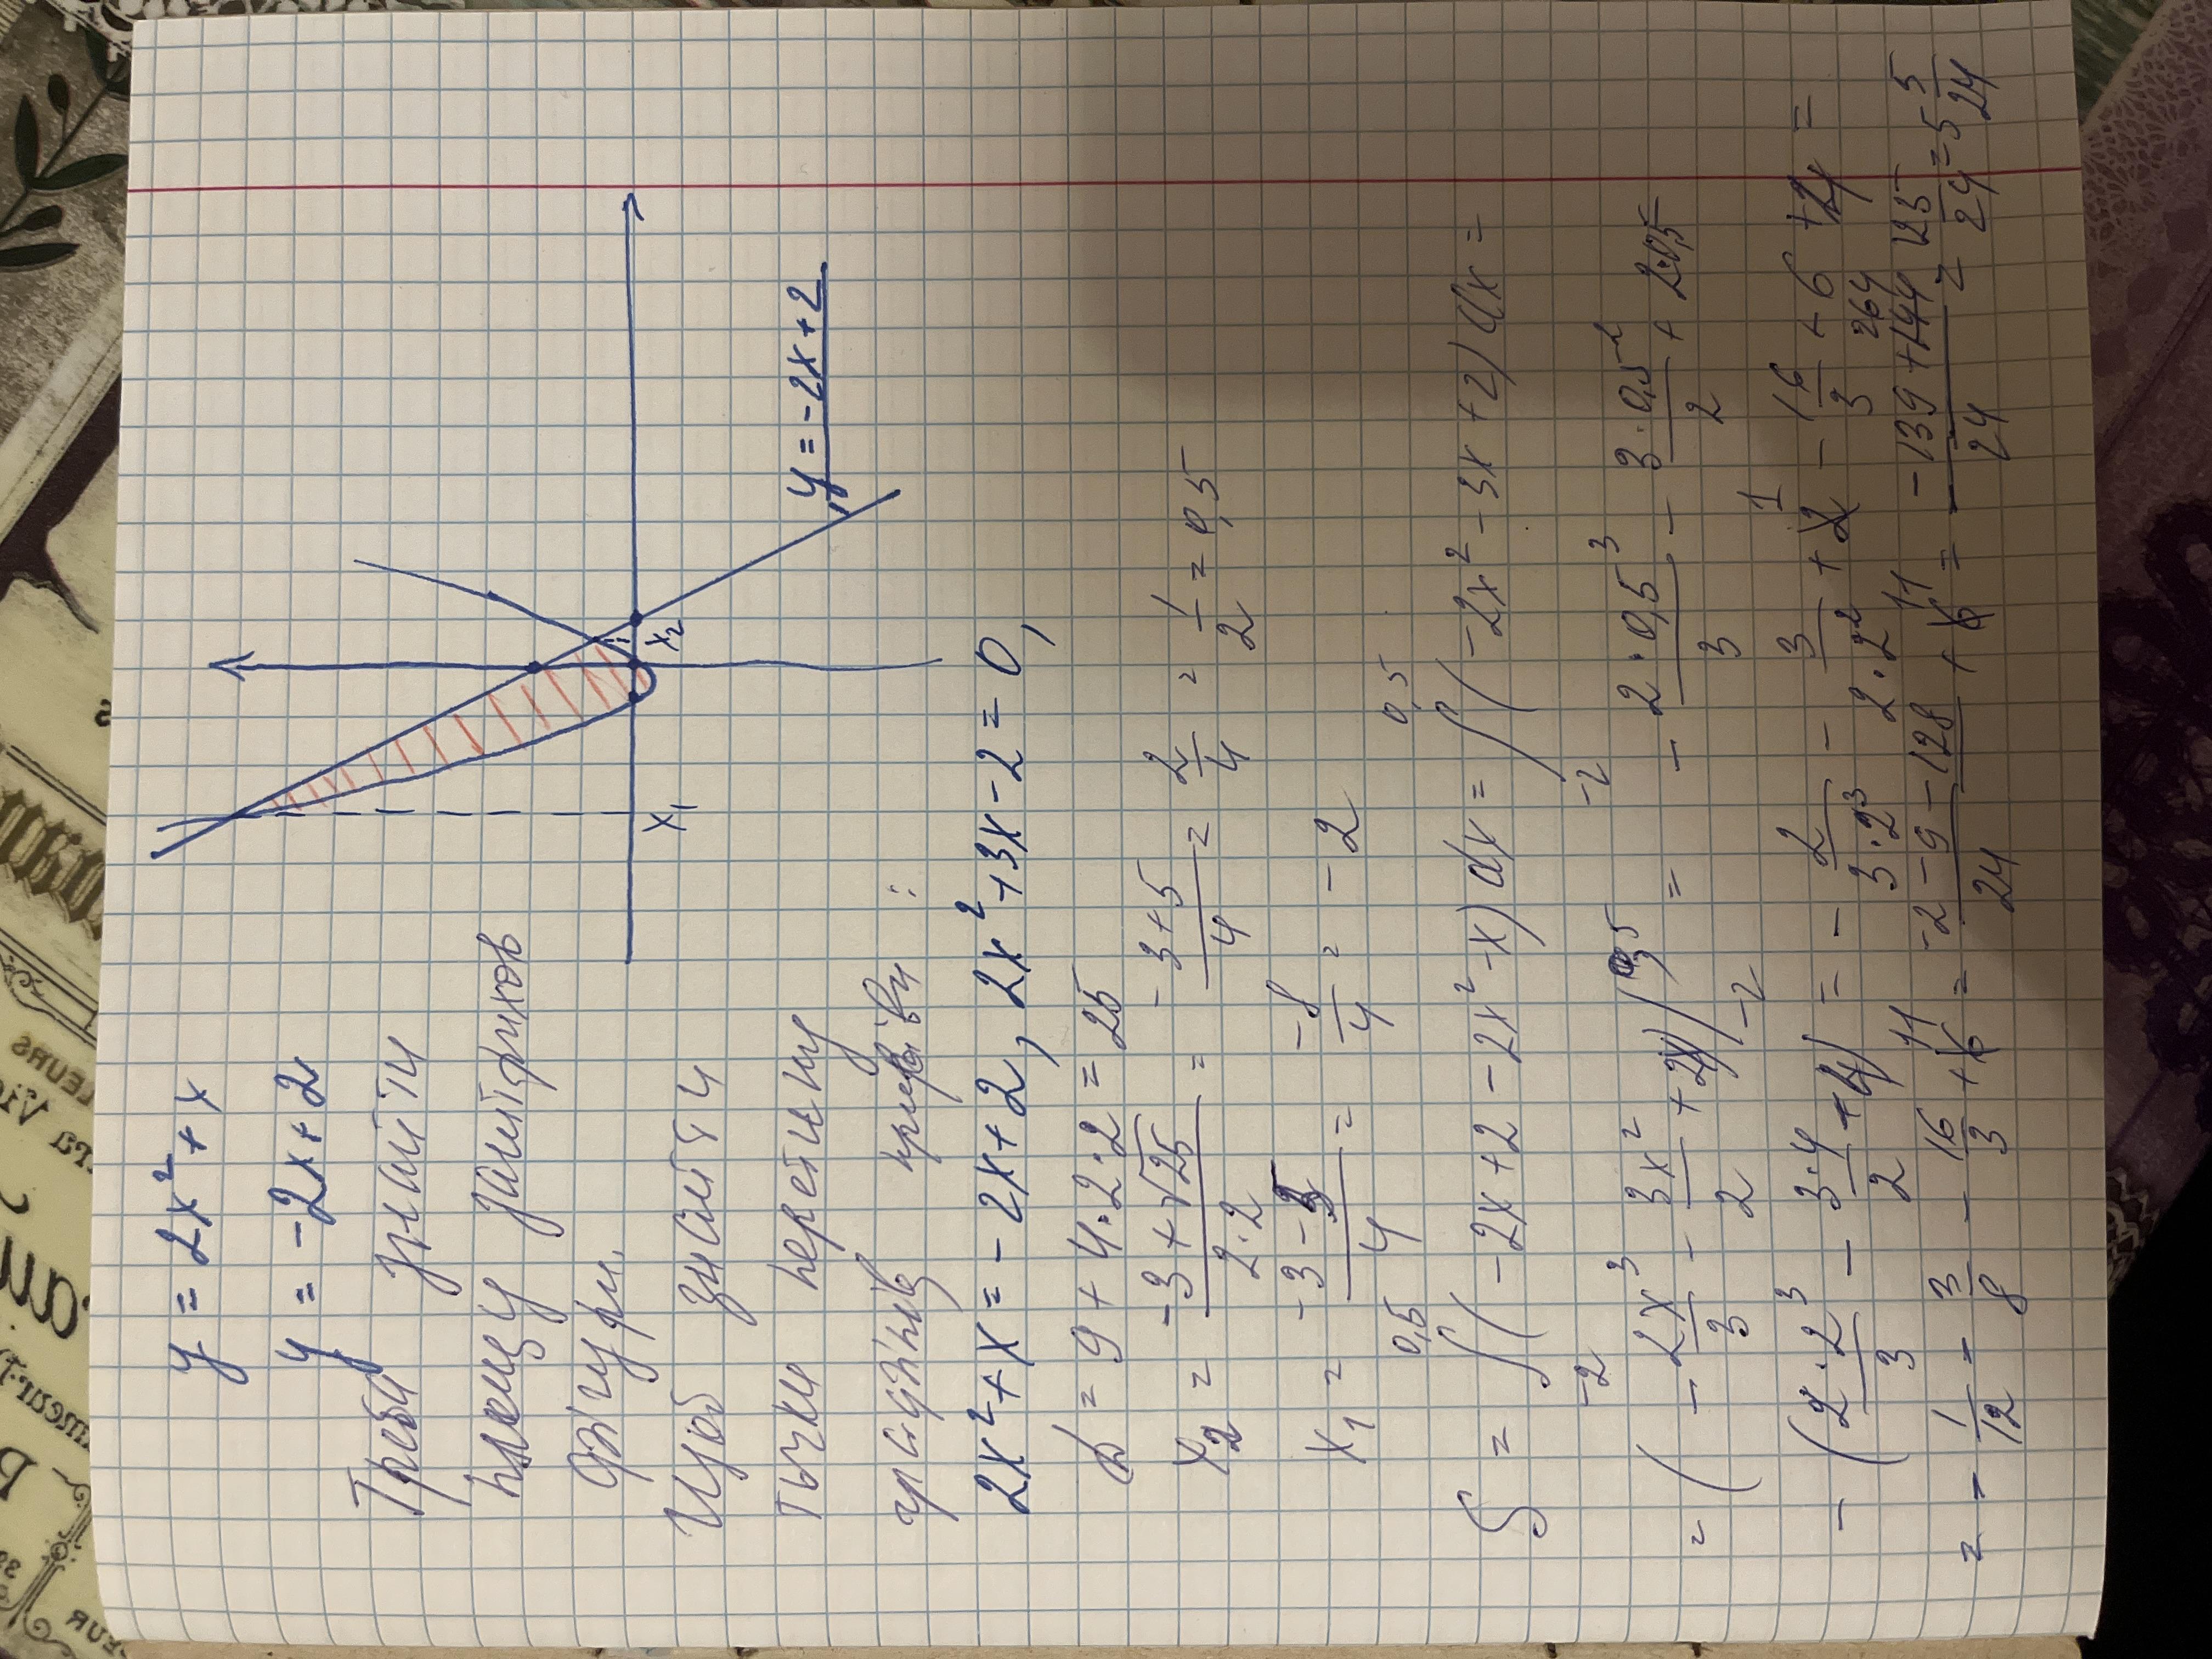 y = 2x² + x
y = -2x + 2
Треба знайти
площу заштрихов
фігури.
Щоб знайти
точки перетину
графіків :
y = -2x + 2
x₁
x₂
2x² + x = -2x + 2, 2x² + 3x - 2 = 0,
D = 9 + 4·2·2 = 25
x₂ = (-3 + √25)/(2·2) = (-3 + 5)/4 = 2/4 = 1/2 = 0,5
x₁ = (-3 - 5)/4 = -8/4 = -2
S = ∫₋₂^0,5 (-2x + 2 - 2x² - x) dx = ∫₋₂^0,5 (-2x² - 3x + 2) dx =
= (- 2x³/3 - 3x²/2 + 2x) |₋₂^0,5 = - 2·0,5³/3 - 3·0,5²/2 + 2·0,5
- (2·2³/3 - 3·4/2 + 4) = - 2/(3·2³) - 3/(2·2²) + 1 - 16/3 + 6 + 4 =
= - 1/12 - 3/8 - 16/3 + 11 = (-2 - 9 - 128)/24 + 11 = (-139 + 264)/24 = 125/24 = 5 5/24